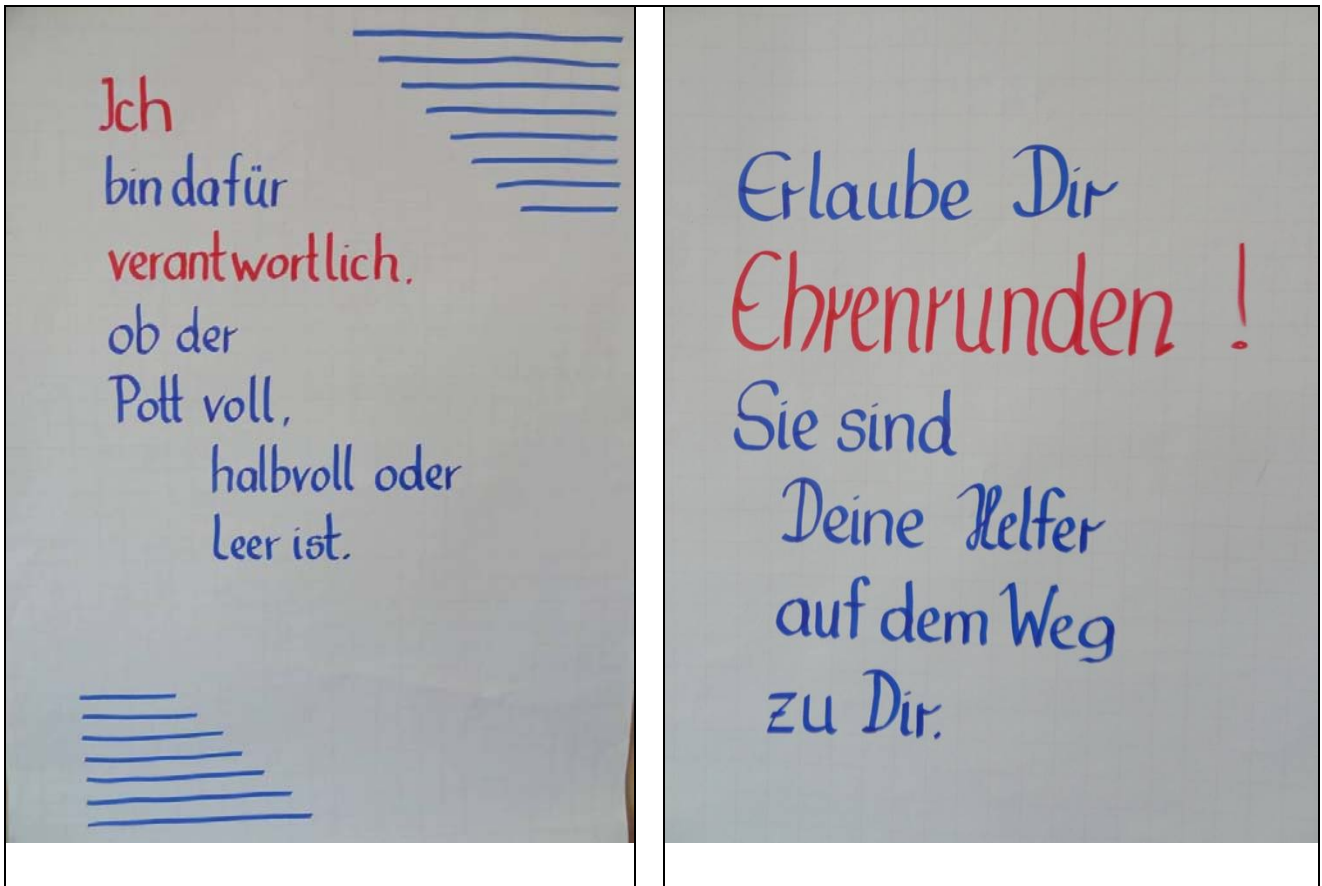 Ich
bin dafür
verantwortlich,
ob der
Pott voll,
halbvoll oder
leer ist.
Erlaube Dir
Ehrenrunden !
Sie sind
Deine Helfer
auf dem Weg
zu Dir.